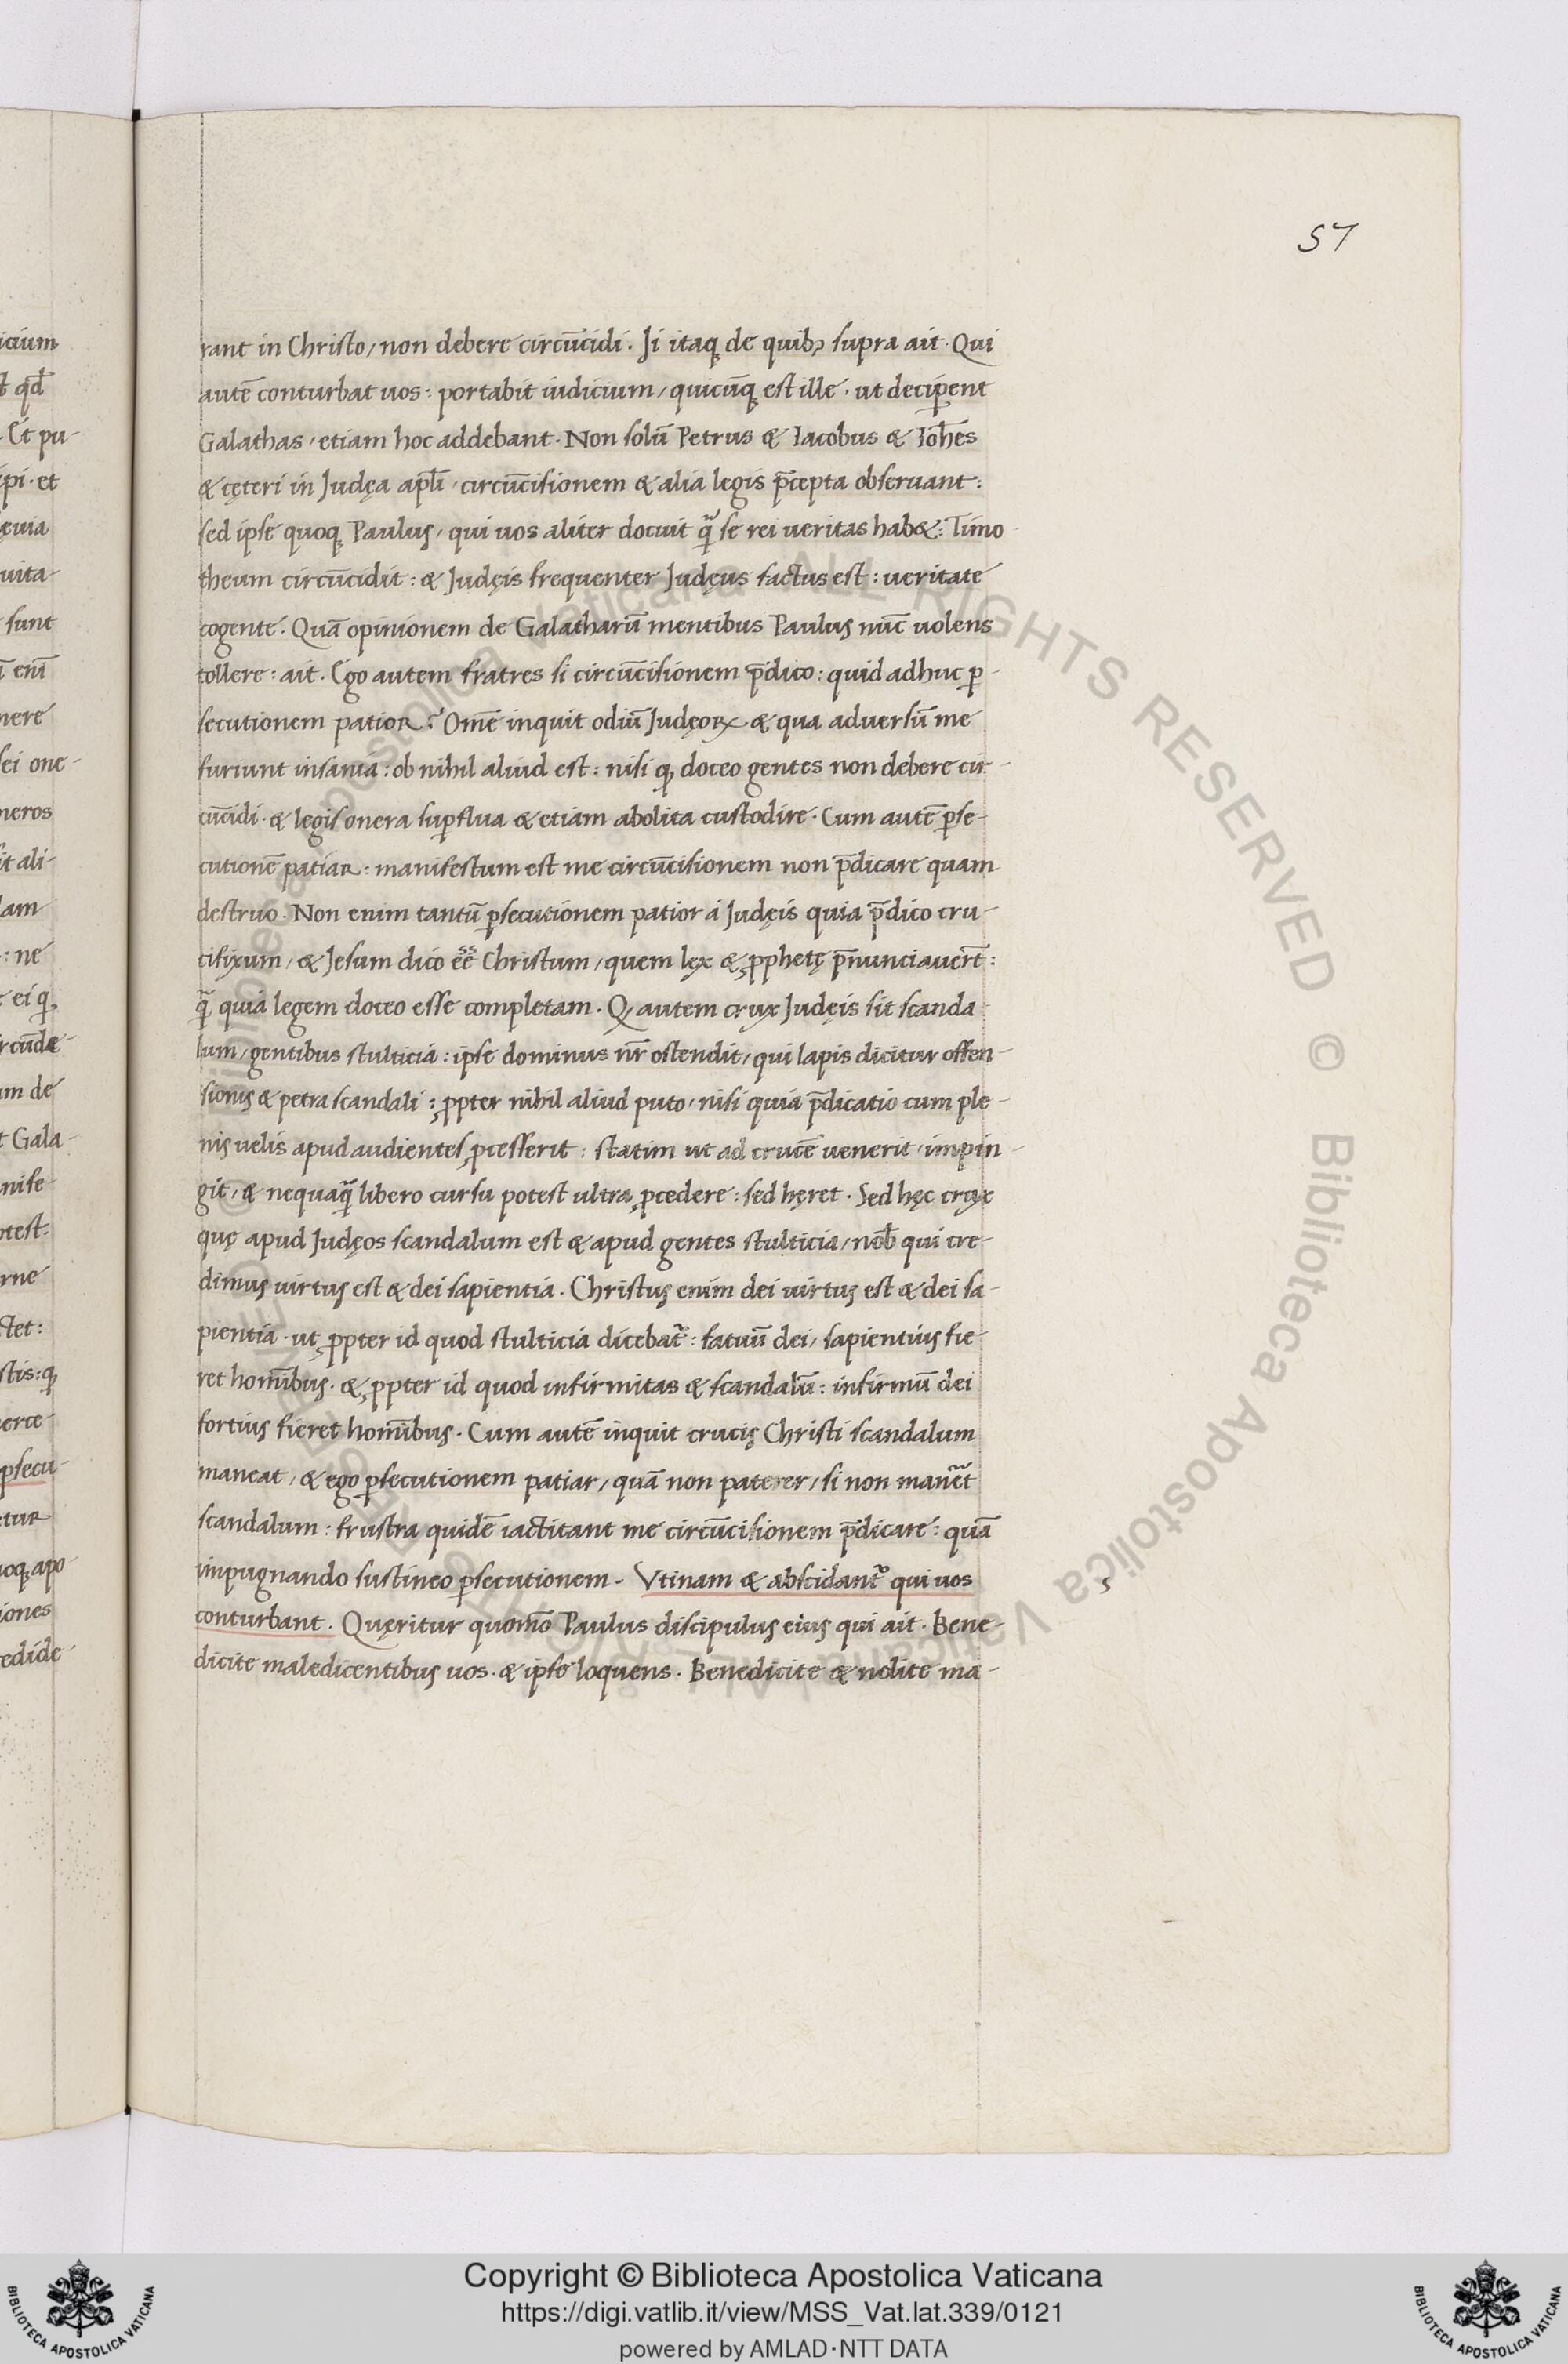 57
rant in Christo / non debere circūcidi . Ii itaq; de quibꝫ supra ait · Qui
autē conturbat uos : portabit iudicium / quicūq; est ille · ut deciꝑent
Galathas / etiam hoc addebant · Non solū Petrus & Iacobus & Ioh̄es
& cęteri in Iudęa apl̄i · circūcisionem & alia legis p̄cepta obseruant :
sed ipse quoq; Paulus / qui uos aliter docuit q̃ se rei ueritas hab& : Timo
theum circūcidit : & Iudęis frequenter Iudęus factus est : ueritate
cogente . Quā opinionem de Galatharū mentibus Paulus nūc uolens
tollere : ait . Ego autem fratres si circūcisionem p̄dico : quid adhuc ꝑ-
secutionem patior ? Om̄e inquit odiū Iudęoꝝ & qua aduersū me
furiunt insania : ob nihil aliud est : nisi ꝙ doceo gentes non debere cir-
cūcidi · & legis onera suꝑflua & etiam abolita custodire · Cum autē ꝑse-
cutionē patiar : manifestum est me circūcisionem non p̄dicare quam
destruo . Non enim tantū ꝑsecutionem patior a Iudęis quia p̄dico cru-
cifixum / & Iesum dico ēē Christum / quem lex & ꝓphetę p̄nunciauer̄t :
q̃ quia legem doceo esse completam . Ꝙ autem crux Iudęis sit scanda
lum / gentibus stulticia : ipse dominus nr̄ ostendit / qui lapis dicitur offen-
sionis & petra scandali : ꝓpter nihil aliud puto / nisi quia p̄dicatio cum ple-
nis uelis apud audientes ꝓcesserit : statim ut ad crucē uenerit / impin-
git / & nequaq̃ libero cursu potest ultra ꝓcedere : sed hęret . Sed hęc crux
quę apud Iudęos scandalum est & apud gentes stulticia / nob̄ qui cre-
dimus uirtus est & dei sapientia . Christus enim dei uirtus est & dei sa-
pientia · ut ꝓpter id quod stulticia dicebat᷑ : fatuū dei / sapientius fie-
ret homīibus · & ꝓpter id quod infirmitas & scandalū : infirmū dei
fortius fieret homīibus · Cum autē inquit crucis Christi scandalum
maneat / & ego ꝑsecutionem patiar / quā non paterer / si non maneret
scandalum : frustra quidē iactitant me circūcisionem p̄dicare : quā
impugnando sustineo ꝑsecutionem . Vtinam & abscidant᷑ qui uos
conturbant . Quęritur quomō Paulus discipulus eius qui ait · Bene-
dicite maledicentibus uos · & ipse loquens · Benedicite & nolite ma-
Copyright © Biblioteca Apostolica Vaticana
https://digi.vatlib.it/view/MSS_Vat.lat.339/0121
powered by AMLAD·NTT DATA